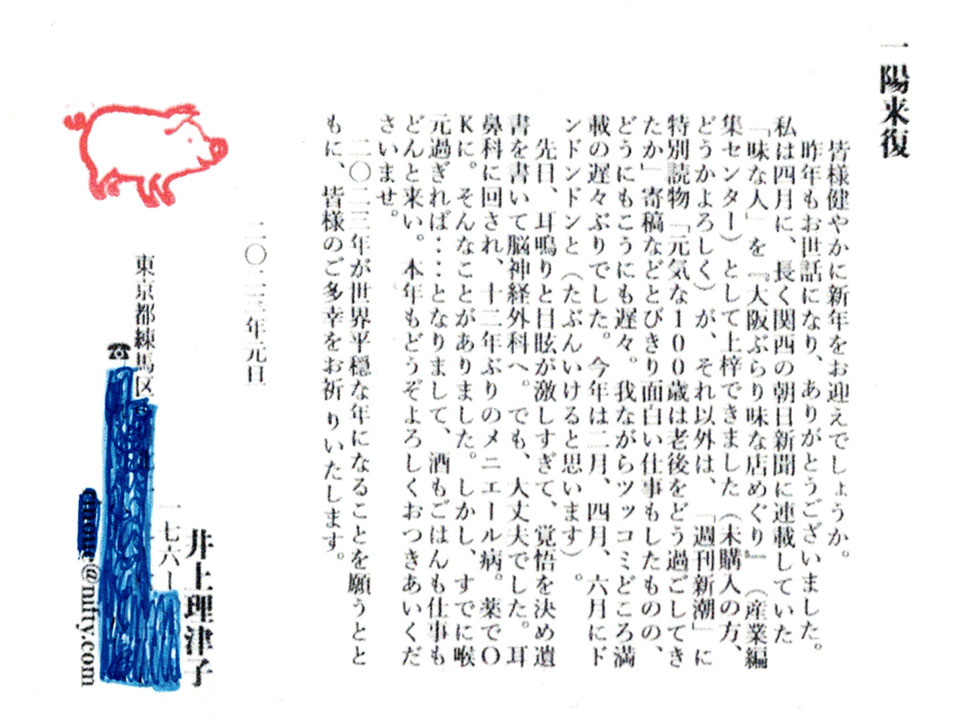 一陽来復
皆様健やかに新年をお迎えでしょうか。
昨年もお世話になり、ありがとうございました。
私は四月に、長く関西の朝日新聞に連載していた
「味な人」を『大阪ぶらり味な店めぐり』（産業編
集センター）として上梓できました（未購入の方、
どうかよろしく）が、それ以外は、「週刊新潮」に
特別読物「元気な100歳は老後をどう過ごしてき
たか」寄稿などとびきり面白い仕事もしたものの、
どうにもこうにも遅々。我ながらツッコミどころ満
載の遅々ぶりでした。今年は二月、四月、六月にド
ンドンドンと（たぶんいけると思います）。
先日、耳鳴りと目眩が激しすぎて、覚悟を決め遺
書を書いて脳神経外科へ。でも、大丈夫でした。耳
鼻科に回され、十二年ぶりのメニエール病。薬でO
Kに。そんなことがありました。しかし、すでに喉
元過ぎれば・・・となりまして、酒もごはんも仕事も
どんと来い。本年もどうぞよろしくおつきあいくだ
さいませ。
二〇二三年が世界平穏な年になることを願うとと
もに、皆様のご多幸をお祈りいたします。
二〇二三年元旦
井上理津子
一七六ー
東京都練馬区
☎
@nifty.com